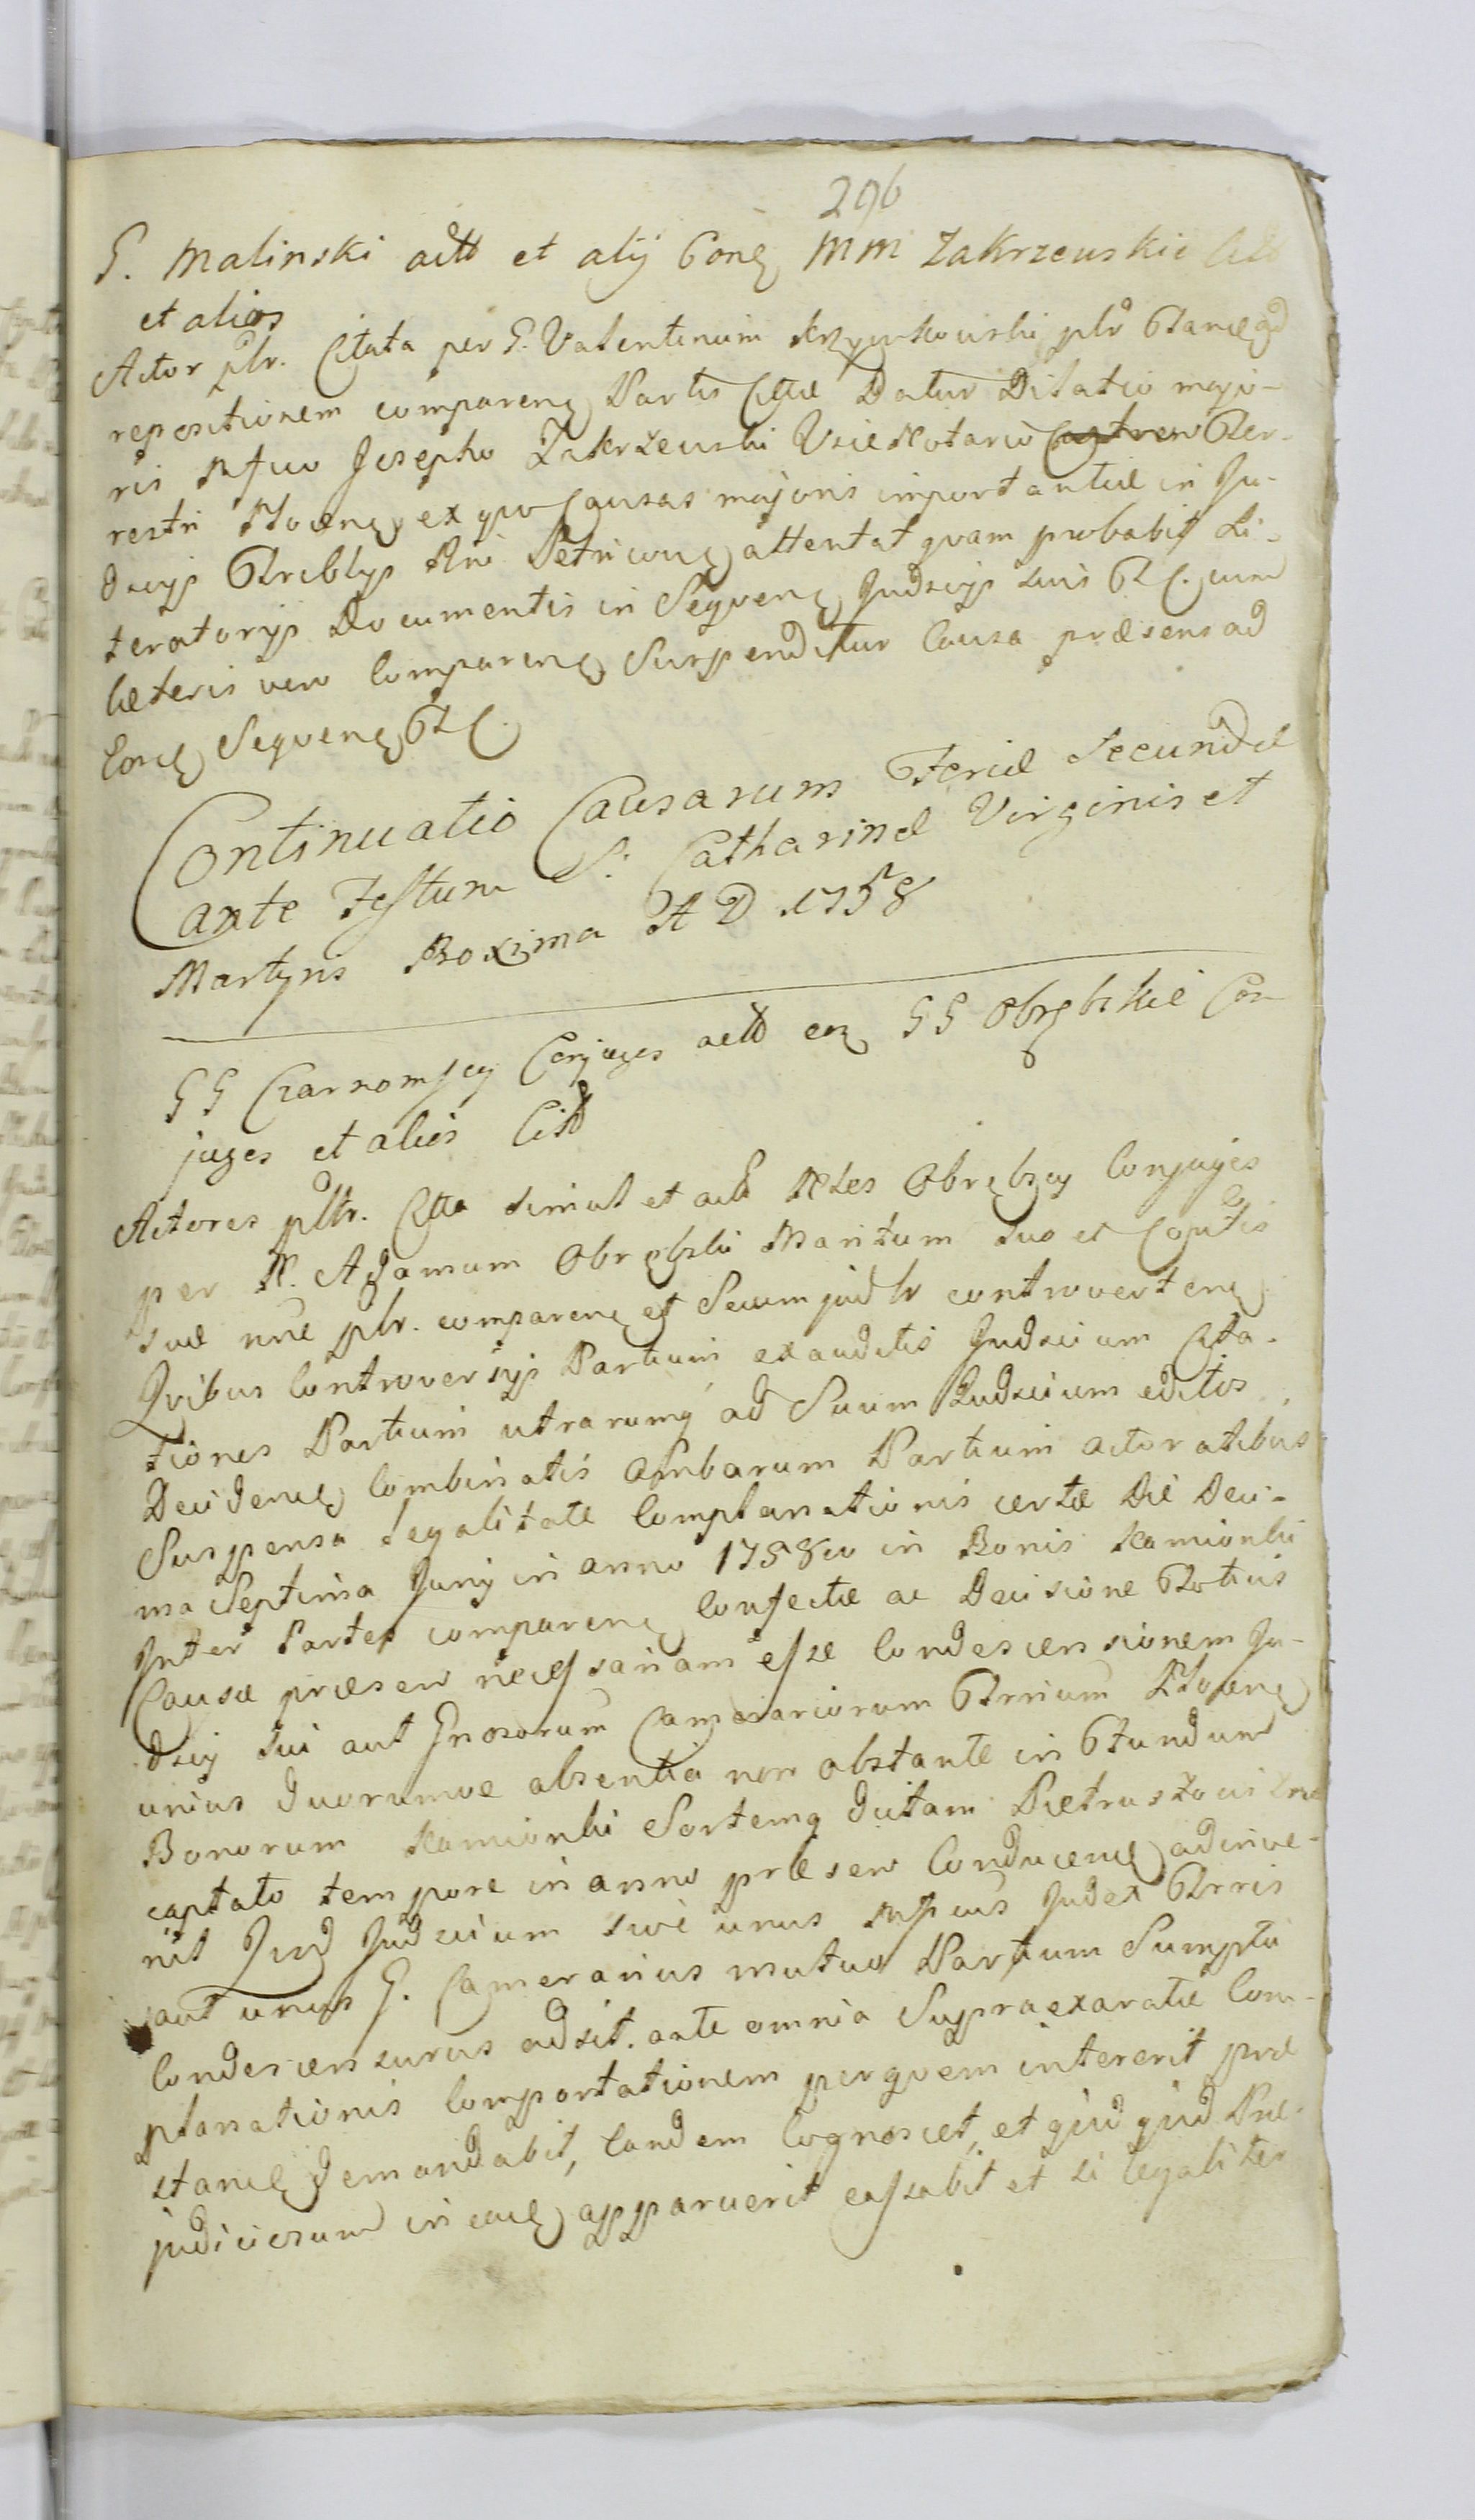 296
G. Malinski actt et alij Conq MM Zakrzewskie Citt
et alios
Actor pltr. Citata per G. Valentinum Krzywkowski pltr Tanecqd
repositionem comparenq Partis Cttae Datur Dilatio majo-
ris Mfico Josepho Zakrzewski Vice Notario Castren Ter-
restri Plocenq ex quo Causas majoris importantiae in Ju-
dicijs Triblijs Rni Petricovie attentat quam probabit Li-
teratorijs Documentis in Sequenq Judicijs suis T C. cum
caeteris vero Comparenq Suspenditur Causa praesens ad
Conq Sequenq T C
Continuatio Causarum Feriae Secundae
ante Festum S. Catharinae Virginis et
Martyris Proxima A D 1758
GG Czarnomscy Conjuges actt cnq GG Obrębskie Con-
juges et alios Citt
Actores pltr. Citta simul et actt Nles Obrębscy Conjuges
per N. Adamum Obrębski Maritum suo et Conjutis
suae nne pltr. comparenq et Secum judlr controvertenq
Quibus Controversijs Partium exauditis Judicium Cita-
tiones Partium utrarumq ad Suum Judicium editos
Decidenq Combinatis Ambarum Partium actoratibus
Suspensa Legalitate Complanationis certae Die Deci-
ma Septima Junij in anno 1758vo in Bonis Kamionki
Inter Partes comparenq Confectae ac Decisione Totius
Causae praesen necessariam esse Condescensionem Ju-
dicij sui aut Gnosorum Camerariorum Trrium Plocenq
unius duorumve absentia non obstante in Fundum
Bonorum Kamionki Sortemq dictam Pietraszowizna
captato tempore in anno praesen Conducenq adinve-
nit Quod Judicium sive unus Mficus Judex Trris
aut unus G. Camerarius mutuo Partium Sumptu
Condescensurus adsit. ante omnia Supraexaratae Com-
planationis Comportationem per quem intererit prae
stanq demandabit, eandem Cognoscet, et quid quid Prae-
judiciosum in eaq apparuerit cassabit et si legaliter